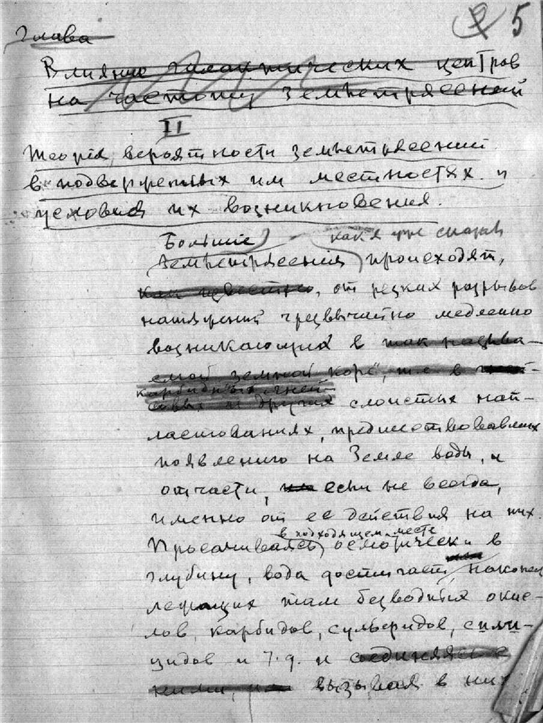 2 5
Глава
Влияние галактических центров
на частоту землетрясений
II
Теория вероятности землетрясений
в подверженных им местностях и
условия их возникновения.
Большие как я уже сказал
землетрясения происходят,
как известно, от резких разрывов
напряжений чрезвычайно медленно
возникающих в так называ-
емой земной коре, т.е. в
карбидных гней-
совых и других слоистых нап-
ластованиях, предшествовавших
появлению на Земле воды, и
отчасти, если не всегда,
именно от ее действия на них.
в подходящем месте
Просачиваясь осмотически в
глубину, вода достигает наконец
лежащих там безводных окис-
лов, карбидов, сульфидов, сили-
цидов и т.д. и соединяясь с
ними, вызывая в них